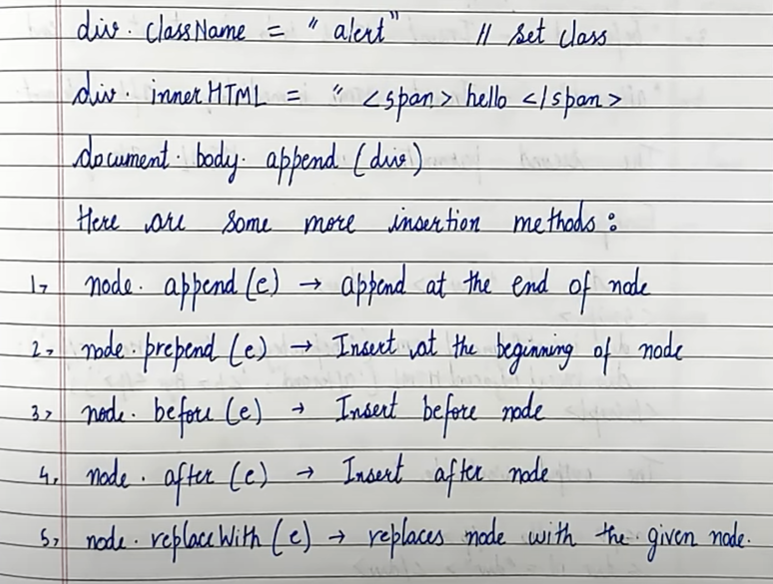 div. className = "alert" // set class
div. innerHTML = "<span> hello </span>
document. body. append (div)
Here are some more insertion methods :
1, node. append (e) → append at the end of node
2, node. prepend (e) → Insert at the beginning of node
3, node. before (e) → Insert before node
4, node. after (e) → Insert after node
5, node. replaceWith (e) → replaces node with the given node.